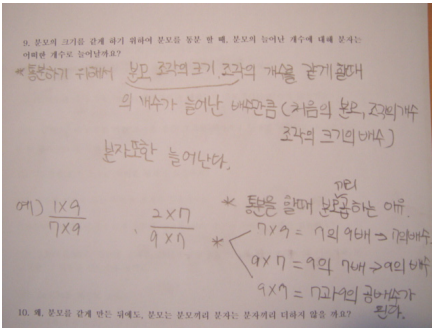 9. 분모의 크기를 같게 하기 위하여 분모를 통분 할 때, 분모의 늘어난 개수에 대해 분자는
어떠한 개수로 늘어날까요?
*통분하기 위해서 분모, 조각의 크기, 조각의 개수를 같게 할때
의 개수가 늘어난 배수만큼 (처음의 분모, 조각의 개수
조각의 크기의 배수)
분자또한 늘어난다.
예) 1×9 / 7×9 , 2×7 / 9×7
* 통분을 할때 분모끼리 곱하는 이유.
* 7×9 = 7의 9배 → 7의배수.
9×7 = 9의 7배 → 9의 배수
9×7 = 7과9의 공배수가
된다.
10. 왜, 분모를 같게 만든 뒤에도, 분모는 분모끼리 분자는 분자끼리 더하지 않을 까요?